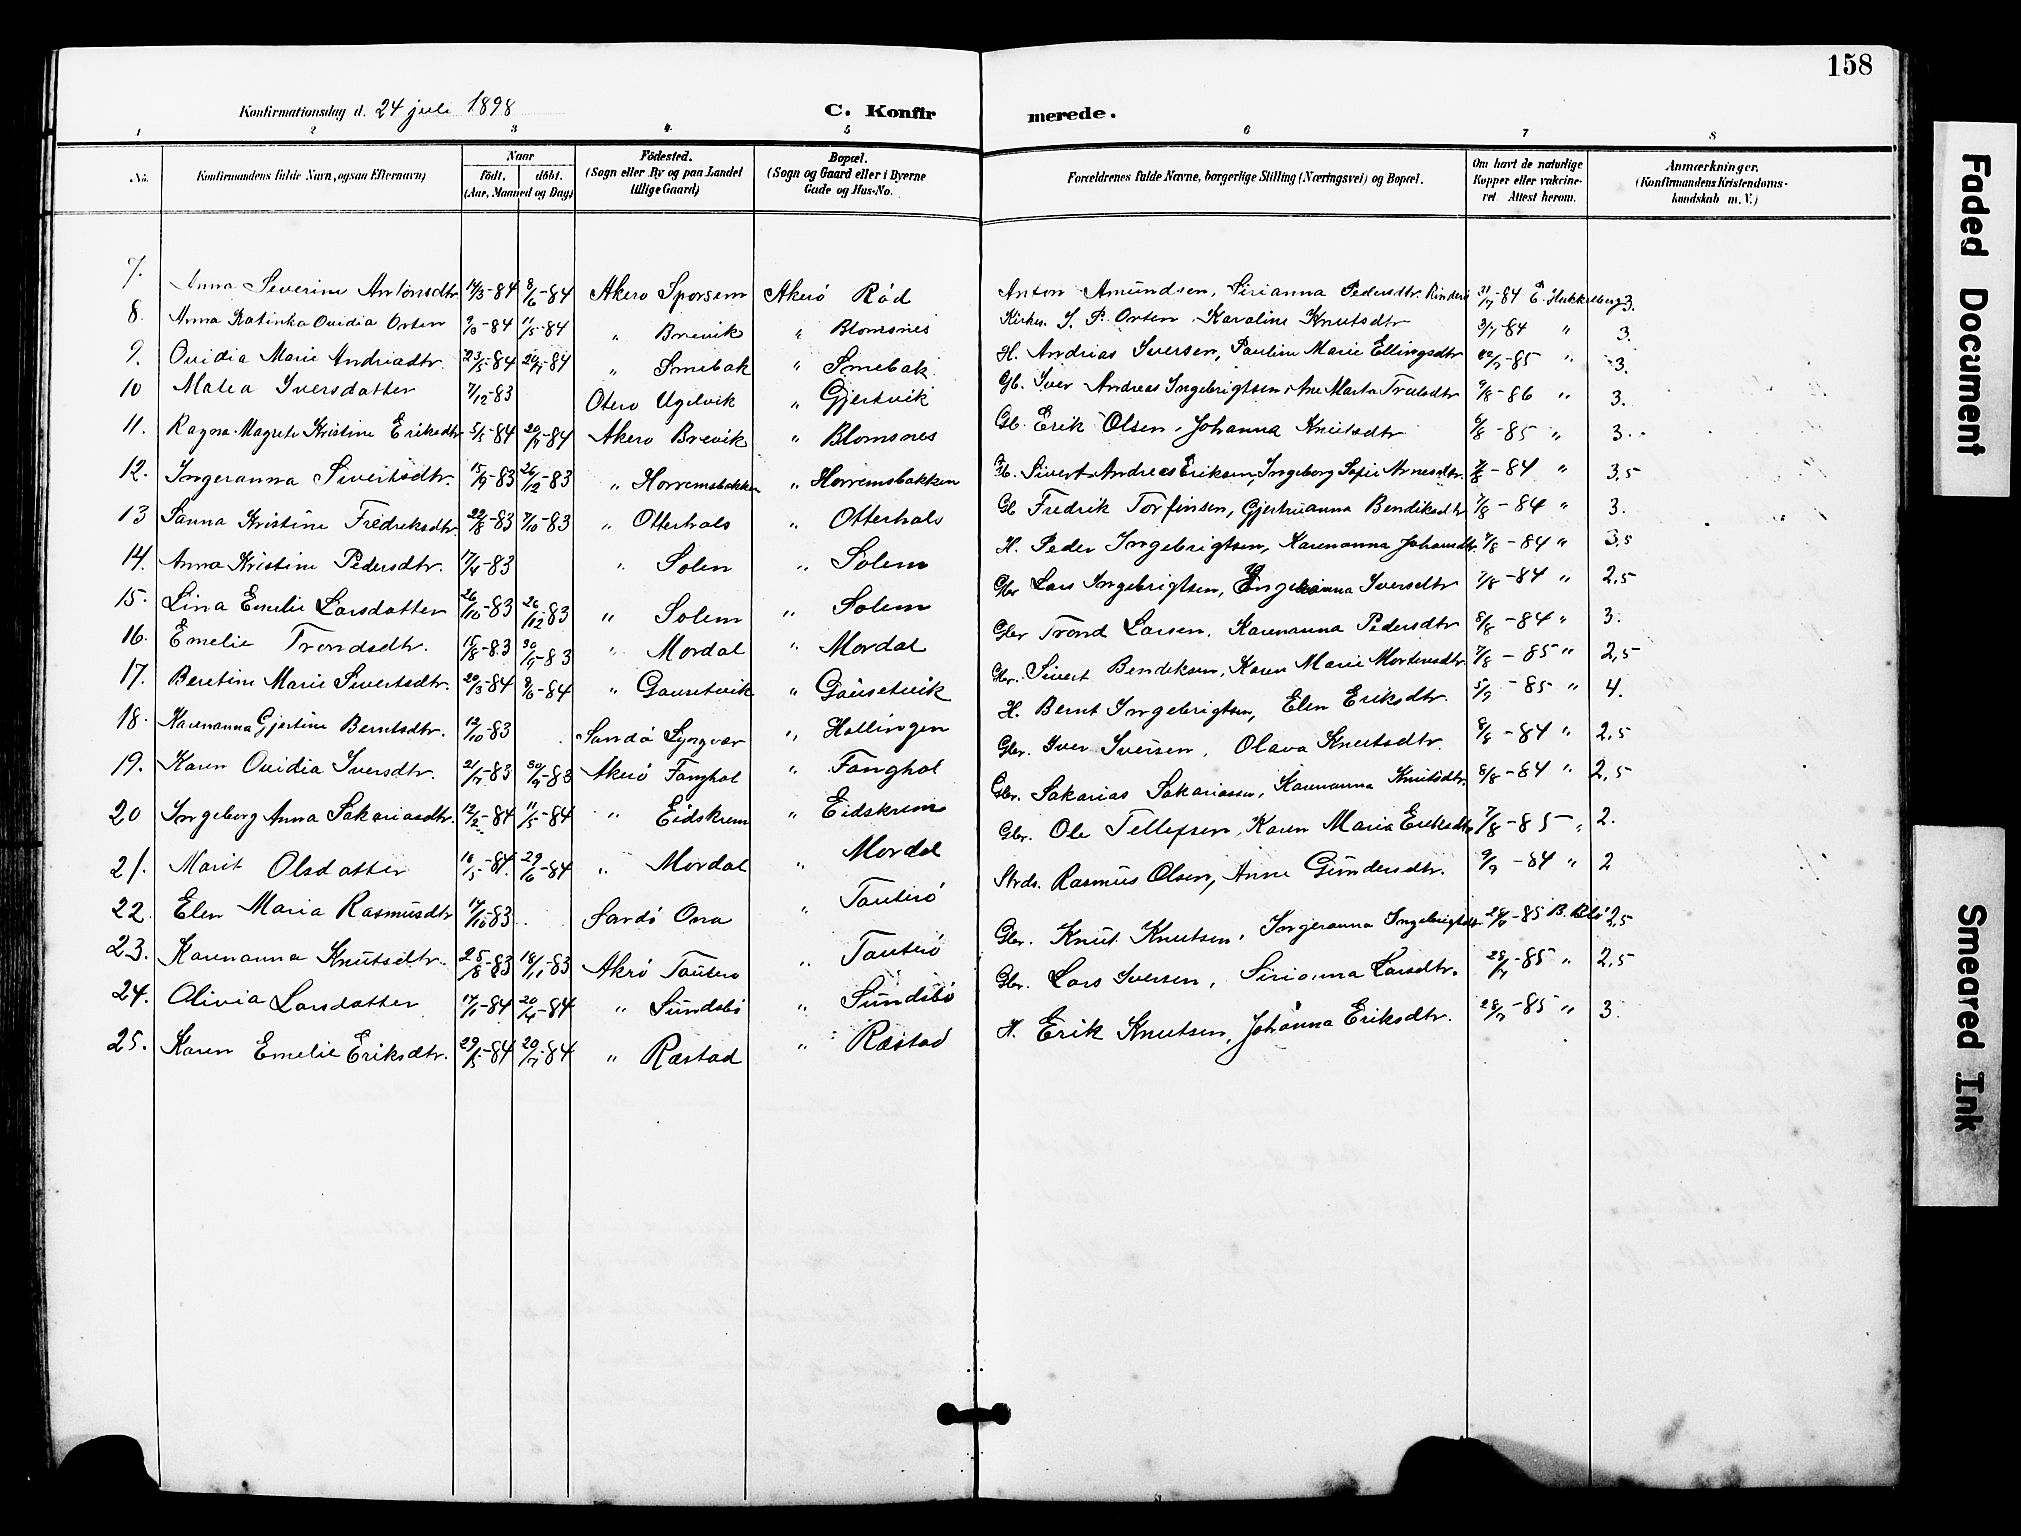 158
Konfirmationsdag d. 24 juli 1898 C. Konfirmerede.
1 2 3 4. 5 6 7 8
No. Konfirmandens fulde Navn, ogsaa Efternavn) Naar födt. döbt. (Aar, Maaned og Dag) Födested. (Sogn eller By og paa Landet tillige Gaard) Bopæl. (Sogn og Gaard eller i Byerne Gade og Hus-No. Forældrenes fulde Navne, borgerlige Stilling (Næringsvei) og Bopæl. Om havt de naturlige Kopper eller vakcineret Attest herom. Anmærkninger. (Konfirmandens Kristendomskundskab m. V.)
7. Anna Severine Antonsdtr 14/3-84 8/6-84 Akerø Sporsem Akerø Rød Anton Amundsen, Sirianna Pedersdtr. 21/7-84 E. Hukkelberg 3.
8. Anna Katinka Ovidia Orten 11/5-84 " Brevik " Blomsnes Kirkes. S. P. Orten Karoline Knutsdtr 3/7-84 " 3.
9. Ovidia Marie Andriadtr. 23/5-84 20/7-84 " Smebak " Smebak H. Andrias Iversen, Pauline Marie Ellingsdtr 22/7-85 " 3.
10 Malea Iversdatter 7/12-83 Oterø Ugelvik " Gjertvik Gb. Iver Andreas Ingebrigtsen, Ane Marta Trulsdtr 9/8-86 " 3.
11. Ragna Magrete Kristine Eriksdtr 5/5-84 20/7-84 Akerø Brevik " Blomsnes Gb. Erik Olsen, Johanna Knutsdtr 6/8-85 " 3.
12. Ingeranna Sivertsdtr. 15/9-83 26/12-83 " Horremsbakken " Horremsbakken Sivert Andreas Eriksen, Ingeborg Sofie Arnesdtr. 7/8-84 " 3,5
13 Sanna Kristine Fredriksdtr 22/8-83 7/10-83 " Otterhals " Otterhals Gb Fredrik Torfinsen, Gjertruanna Bendiksdtr 7/8-84 " 3.
14. Anna Kristine Pedersdtr. 17/4-83 " Solem " Solem H. Peder Ingebrigtsen, Karenanna Johansdtr. 7/8-84 " 3,5
15. Lina Emelie Larsdatter 26/10-83 26/12-83 " Solem " Solem Gbr Lars Ingebrigtsen, Iversdtr 7/8-84 " 2,5
16. Emelie Trondsdtr. 15/8-83 30/9-83 " Mordal " Mordal Gbr Trond Larsen, Karenanna Pedersdtr 8/8-84 " 3.
17. Beretine Marie Sivertsdtr. 20/3-84 8/6-84 " Gausetvik " Gausetvik Gbr. Sivert Bendiksen, Karen Marie Mortensdtr. 7/8-85 " 2,5
18. Karenanna Gjertine Berntsdtr. 12/10-83 Sandø Lyngvær " Hollingen H. Bernt Ingebrigtsen, Elen Eriksdtr. 5/9-85 " 4.
19. Karen Ovidia Iversdtr. 21/7-83 30/9-83 Akerø Fanghol " Fanghol Gbr. Iver Iversen, Olava Knutsdtr. 8/8-84 " 2,5
20 Ingeborg Anna Sakariasdtr. 12/2-84 11/5-84 " Eidskrem " Eidskrem Gbr. Sakarias Sakariassen, Karenanna Knutsdtr. 8/8-84 " 2,5
21. Marit Olsdatter 16/5-84. 29/6-84 " Mordal " Mordal Gbr. Ole Tellefsen, Karen Maria Eriksdtr 7/8-85 " 2.
22. Elen Maria Rasmusdtr 17/10-83 Sandø Ona " Tauterø Strds. Rasmus Olsen, Anne Gundersdtr. 9/9-84 " 2
23. Karenanna Knutsdtr. 25/8-83 18/11-83 Akrø Tauterø " Tauterø Gbr. Knut Knutsen, Ingeranna Ingebrigtsdtr. 28/9-85 B. 2,5
24. Olivia Larsdatter 20/4-84 " Sundsbø " Sundsbø Gbr. Lars Iversen, Sirianna Larsdtr. 28/7-85 " 2,5
25. Karen Emelie Eriksdtr. 29/5-84 20/7-84 " Ræstad " Ræstad H. Erik Knutsen, Johanna Eriksdtr. 28/7-85 " 3.
Faded Document
Smeared Ink